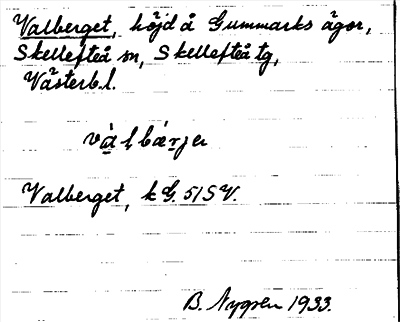 Valberget, höjd å Gummarks ägor,
Skellefteå sn, Skellefteå tg,
Västerb.l.
Valberget, k G. 51 SV.
B. Nygren 1933.